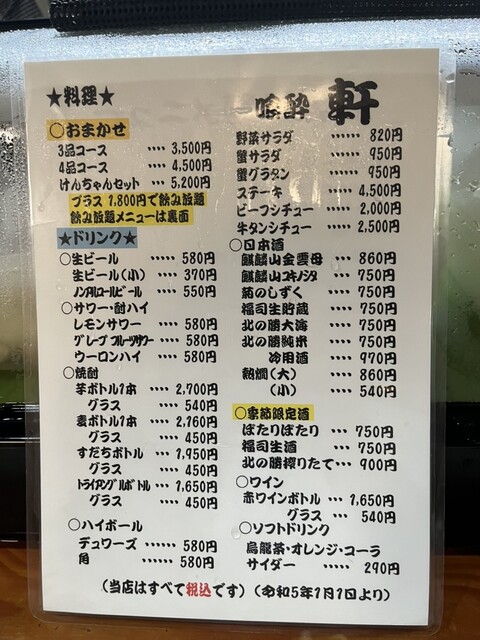 ★料理★
○おまかせ
3品コース ‥‥ 3,500円
4品コース ‥‥ 4,500円
けんちゃんセット ‥‥ 5,200円
プラス 1,800円で飲み放題
飲み放題メニューは裏面
★ドリンク★
○生ビール ‥‥ 580円
生ビール(小) ‥‥ 370円
ノンアルコールビール ‥‥ 550円
○サワー・酎ハイ
レモンサワー ‥‥ 580円
グレープフルーツサワー ‥‥ 580円
ウーロンハイ ‥‥ 580円
○焼酎
芋ボトル1本 ‥‥ 2,700円
グラス ‥‥ 540円
麦ボトル1本 ‥‥ 2,160円
グラス ‥‥ 450円
すだちボトル ‥‥ 1,950円
グラス ‥‥ 450円
トライアングルボトル ‥‥ 1,650円
グラス ‥‥ 450円
○ハイボール
デュワーズ ‥‥‥ 580円
角 ‥‥‥ 580円
喰酔 軒
野菜サラダ ‥‥‥ 820円
蟹サラダ ‥‥‥ 950円
蟹グラタン ‥‥‥ 950円
ステーキ ‥‥‥ 4,500円
ビーフシチュー ‥‥‥ 2,000円
牛タンシチュー ‥‥‥ 2,500円
○日本酒
麒麟山金雲母 ‥‥ 860円
麒麟山ユキノシタ ‥‥ 750円
菊のしずく ‥‥ 750円
福司生貯蔵 ‥‥ 750円
北の勝大海 ‥‥ 750円
北の勝純米 ‥‥ 750円
冷用酒 ‥‥ 970円
熱燗(大) ‥‥ 860円
(小) ‥‥ 540円
○季節限定酒
ぽたりぽたり ‥‥ 750円
福司生酒 ‥‥ 750円
北の勝搾りたて‥‥ 900円
○ワイン
赤ワインボトル ‥‥ 1,650円
グラス ‥‥ 540円
○ソフトドリンク
烏龍茶・オレンジ・コーラ
サイダー ‥‥‥ 290円
(当店はすべて税込です)(令和5年1月1日より)